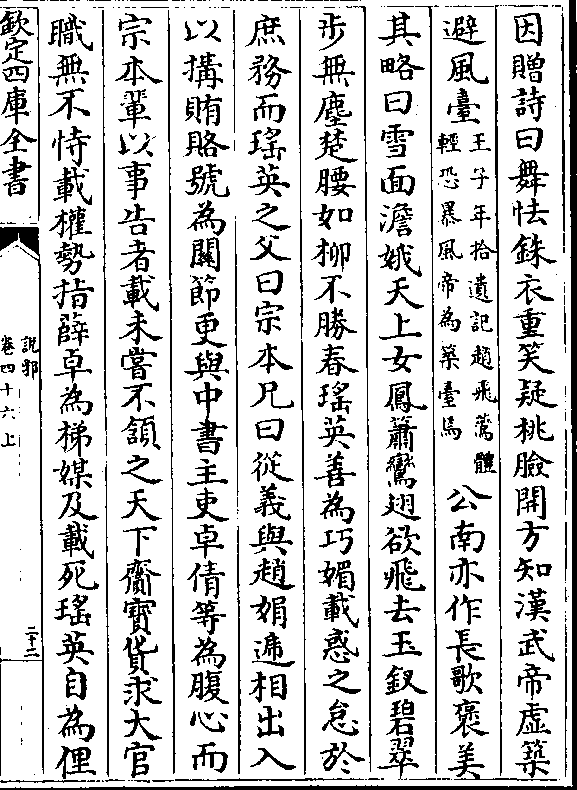 因贈詩曰舞怯銖衣重笑疑桃臉開方知漢武帝虛築
避風臺王子年拾遺記趙飛鷰體輕恐暴風帝為築臺焉公南亦作長歌褒美
其略曰雪面澹娥天上女鳳簫鸞翅欲飛去玉釵碧翠
步無塵楚腰如柳不勝春瑤英善為巧媚載惑之怠於
庶務而瑤英之父曰宗本兄曰從義與趙娟遞相出入
以搆賄賂號為關節更與中書主吏卓倩等為腹心而
宗本輩以事告者載未嘗不頷之天下齎寶貨求大官
職無不恃載權勢指薛卓為梯媒及載死瑤英自為俚
欽定四庫全書
說郛
卷四十六上
二十二